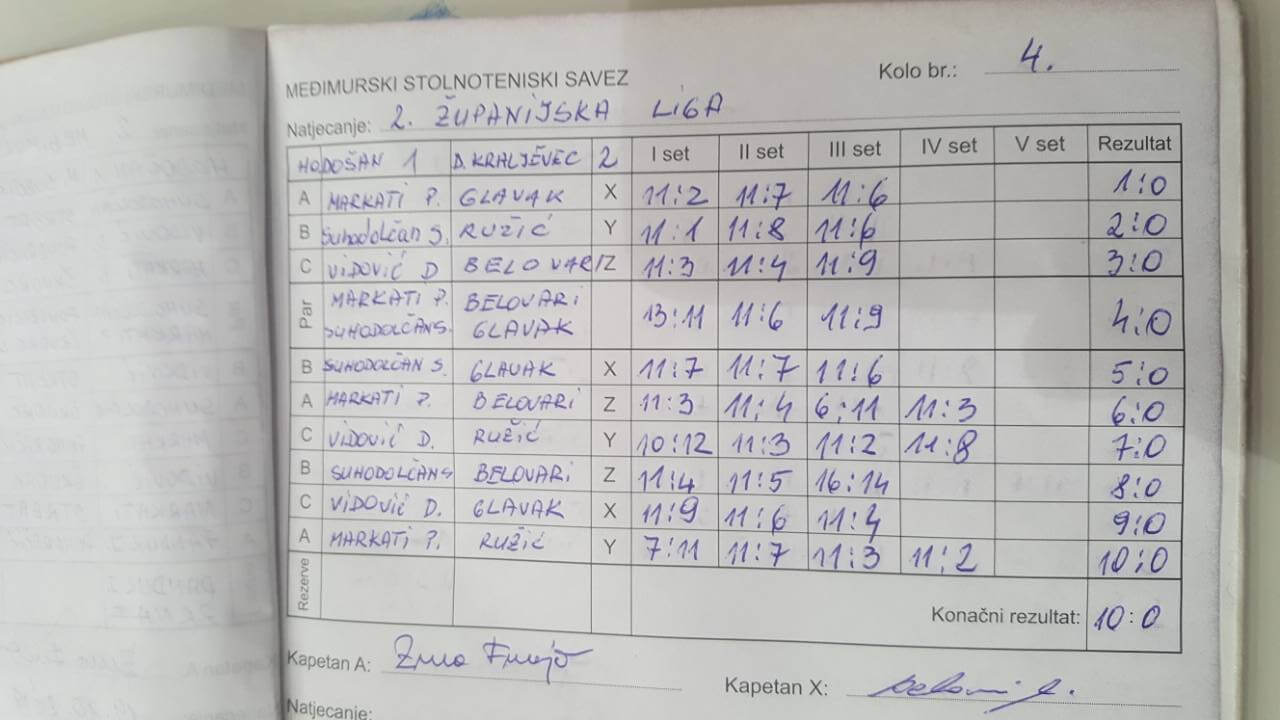 MEĐIMURSKI STOLNOTENISKI SAVEZ
Kolo br.: 4.
Natjecanje: 2. ŽUPANIJSKA LIGA
HODOŠAN 1 D. KRALJEVEC 2 I set II set III set IV set V set Rezultat
A MARKATI P. GLAVAK X 11:2 11:7 11:6 1:0
B SUHODOLČAN S. RUŽIĆ Y 11:1 11:8 11:6 2:0
C VIDOVIĆ D BELOVARI Z 11:3 11:4 11:9 3:0
Par MARKATI P. BELOVARI
SUHODOLČAN S. GLAVAK 13:11 11:6 11:9 4:0
B SUHODOLČAN S. GLAVAK X 11:7 11:7 11:6 5:0
A MARKATI P. BELOVARI Z 11:3 11:4 6:11 11:3 6:0
C VIDOVIĆ D. RUŽIĆ Y 10:12 11:3 11:2 11:8 7:0
B SUHODOLČAN S BELOVARI Z 11:4 11:5 16:14 8:0
C VIDOVIĆ D. GLAVAK X 11:9 11:6 11:4 9:0
A MARKATI P. RUŽIĆ Y 7:11 11:7 11:3 11:2 10:0
Rezerve Konačni rezultat: 10:0
Kapetan A:
Kapetan X:
Natjecanje: